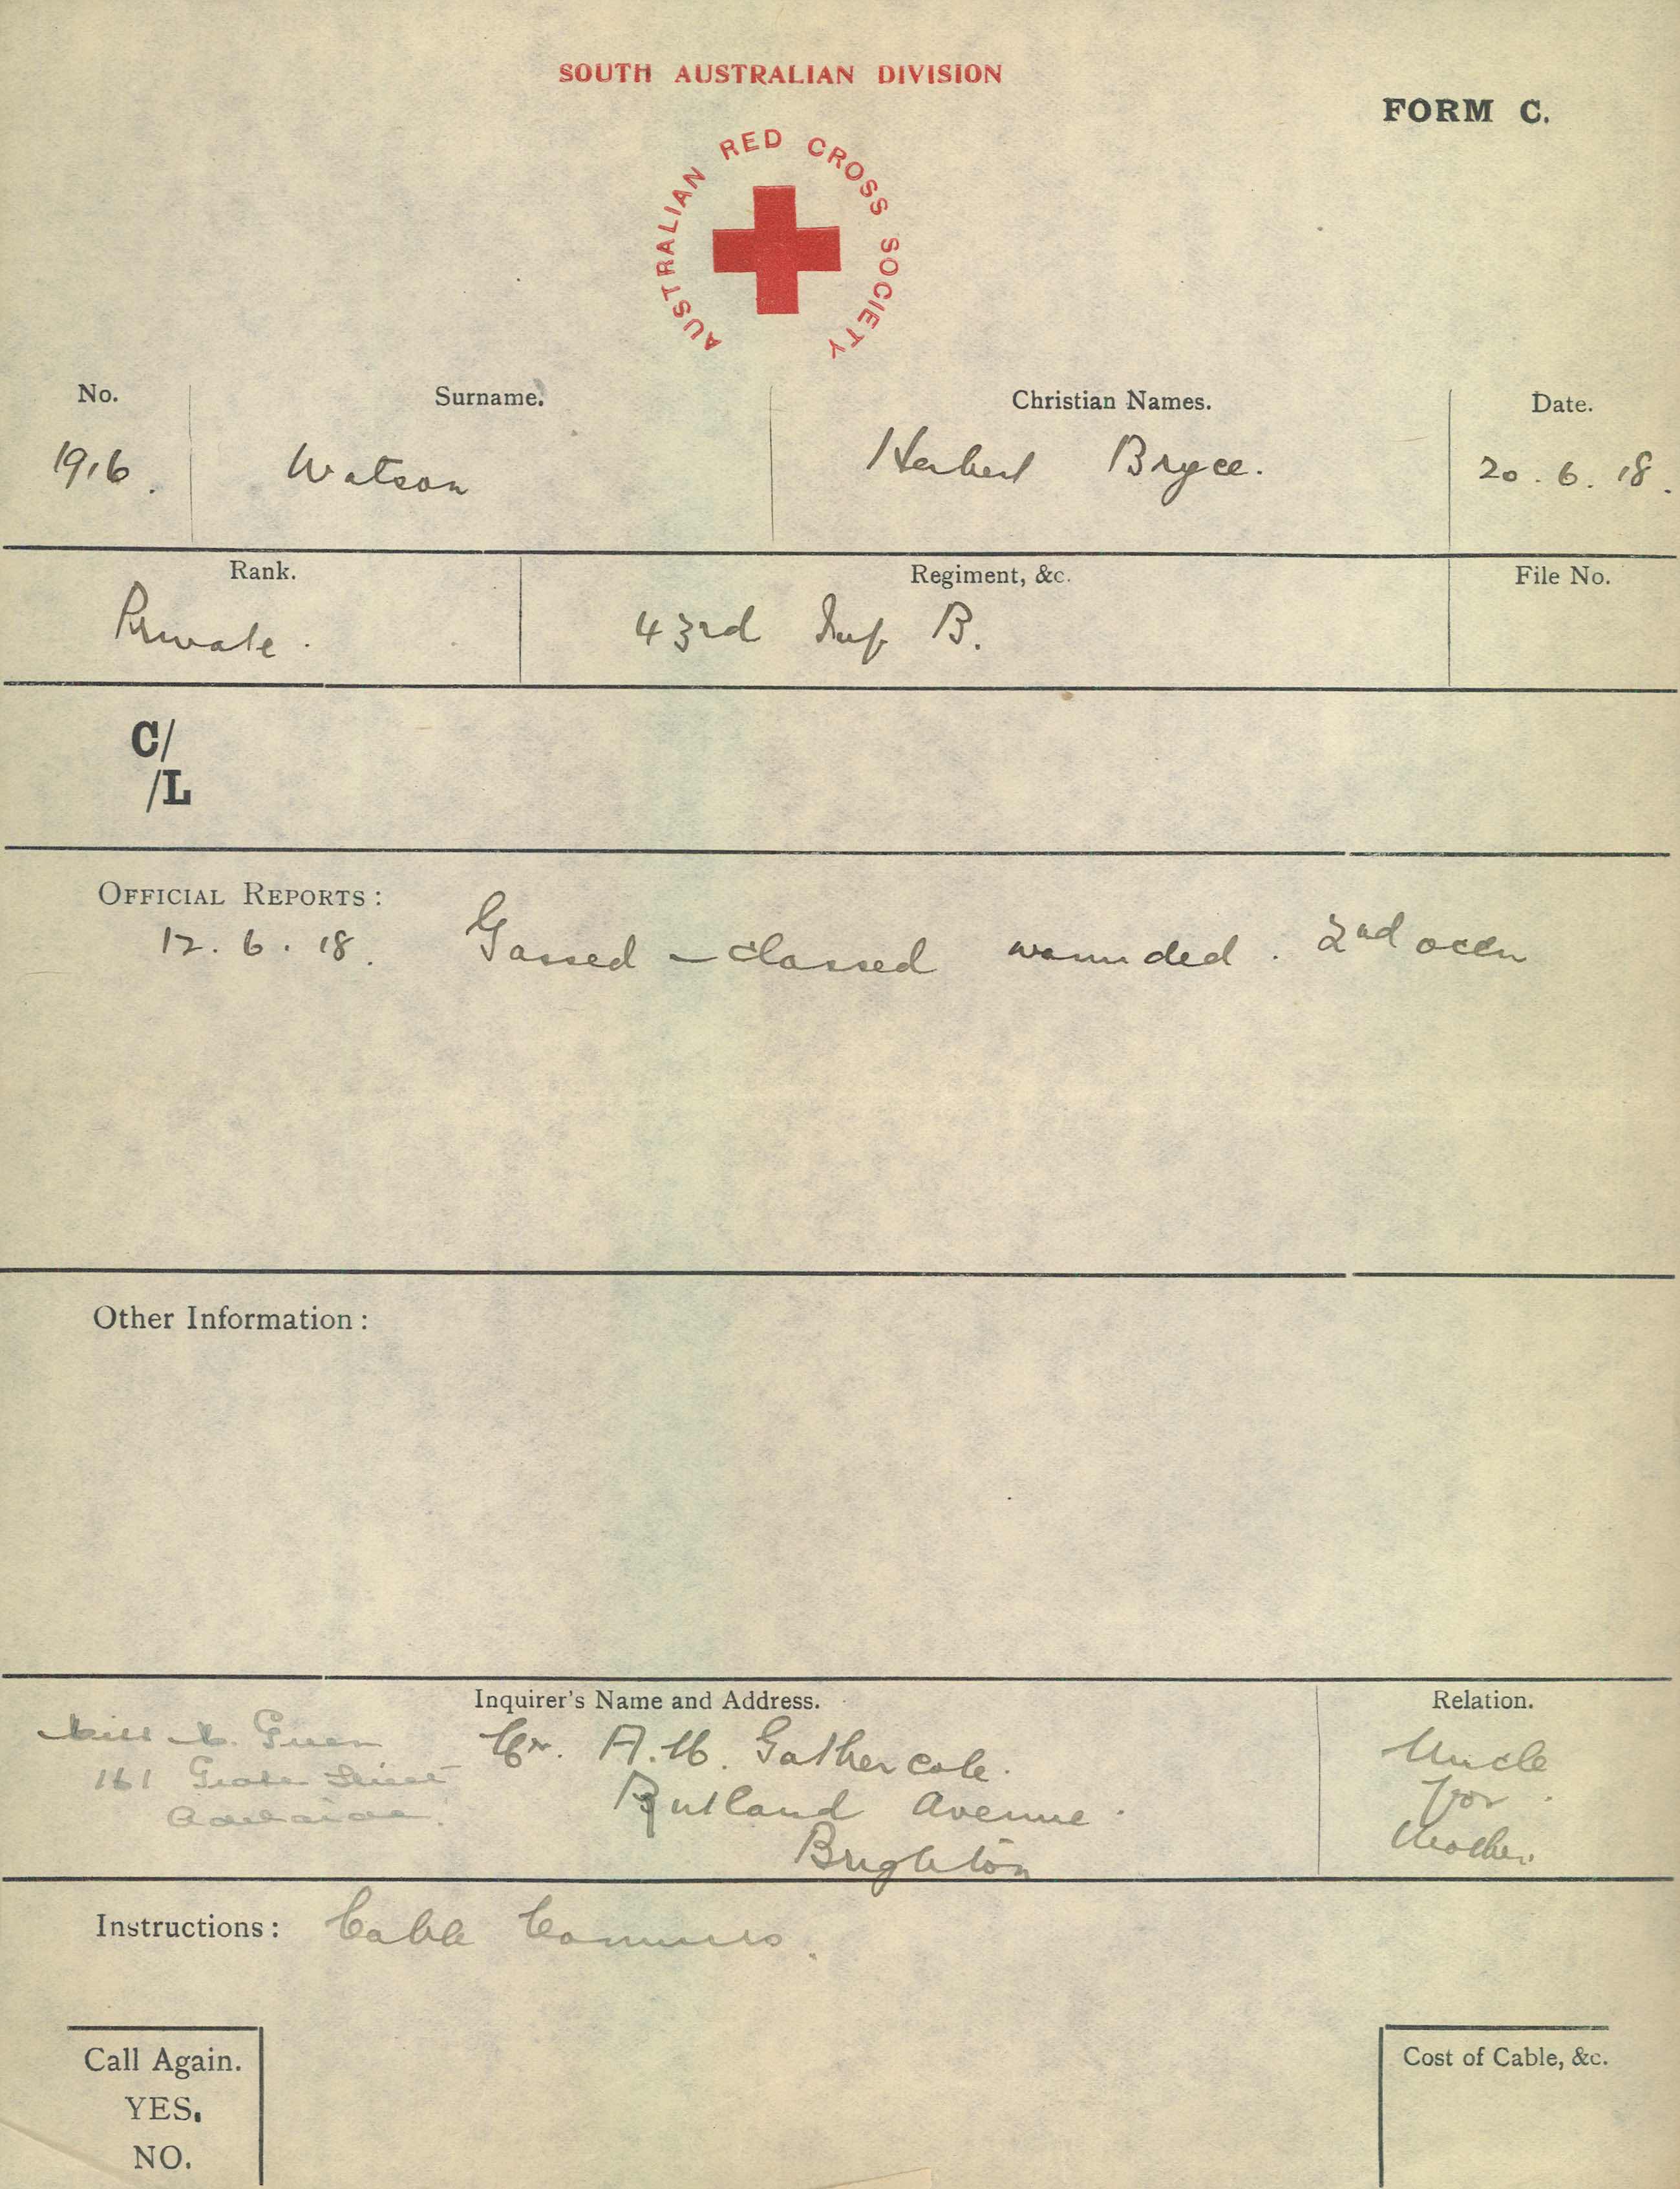 SOUTH AUSTRALIAN DIVISION
FORM C.
AUSTRALIAN RED CROSS SOCIETY
No. Surname. Christian Names. Date.
1916. Watson Herbert Bryce. 20.6.18.
Rank. Regiment, &c. File No.
Private. 43rd Inf B.
C/
/L
OFFICIAL REPORTS:
12.6.18. Gassed - classed wounded. 2nd occn
Other Information:
Inquirer's Name and Address. Relation.
Miss Green
161 Grote Street
Adelaide.
A. Gathercole.
Rutland Avenue.
Brighton
Uncle
for
Mother.
Instructions: Cable
Call Again.
YES.
NO.
Cost of Cable, &c.